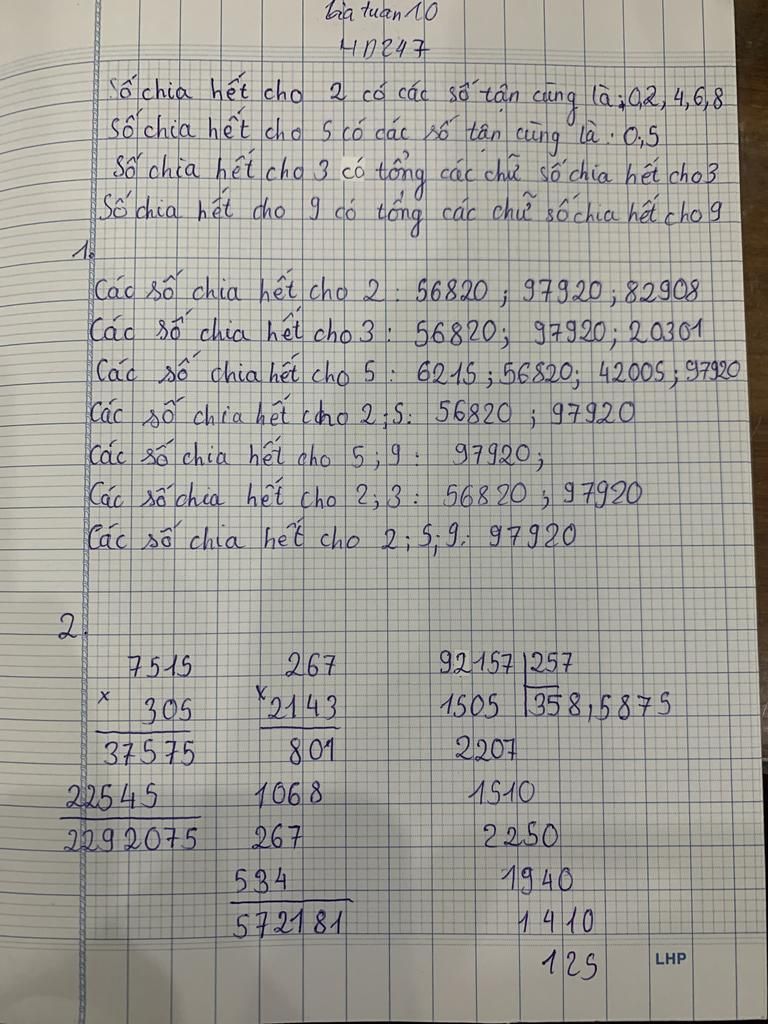 bìa tuần 10
HD247
Số chia hết cho 2 có các số tận cùng là: 0,2, 4, 6, 8
Số chia hết cho 5 có các số tận cùng là: 0,5
Số chia hết cho 3 có tổng các chữ số chia hết cho 3
Số chia hết cho 9 có tổng các chữ số chia hết cho 9
1.
Các số chia hết cho 2: 56820; 97920; 82908
Các số chia hết cho 3: 56820; 97920; 20301
Các số chia hết cho 5: 6215; 56820; 42005; 97920
Các số chia hết cho 2; 5: 56820; 97920
Các số chia hết cho 5; 9: 97920;
Các số chia hết cho 2; 3: 56820; 97920
Các số chia hết cho 2; 5; 9: 97920
2.
7515
x 305
37575
22545
2292075
267
x 2143
801
1068
267
534
572181
92157 257
1505 358,5875
2207
1510
2250
1940
1410
125
LHP